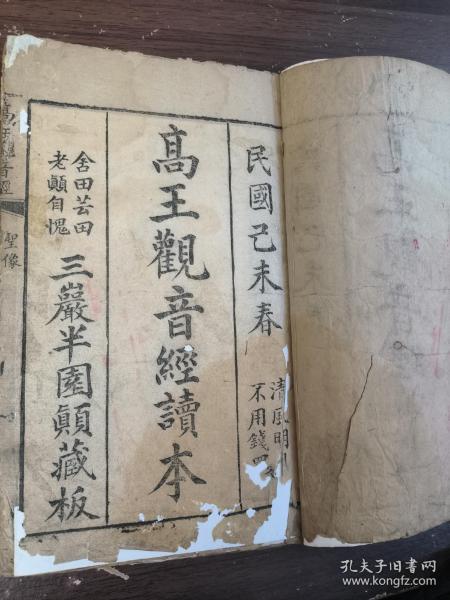 民國己未春
清風明
不用錢
高王觀音經讀本
舍田芸田
老顛自愧
三巖半園顛藏板
高王觀音經
聖像
孔夫子旧书网
www.kongfz.com